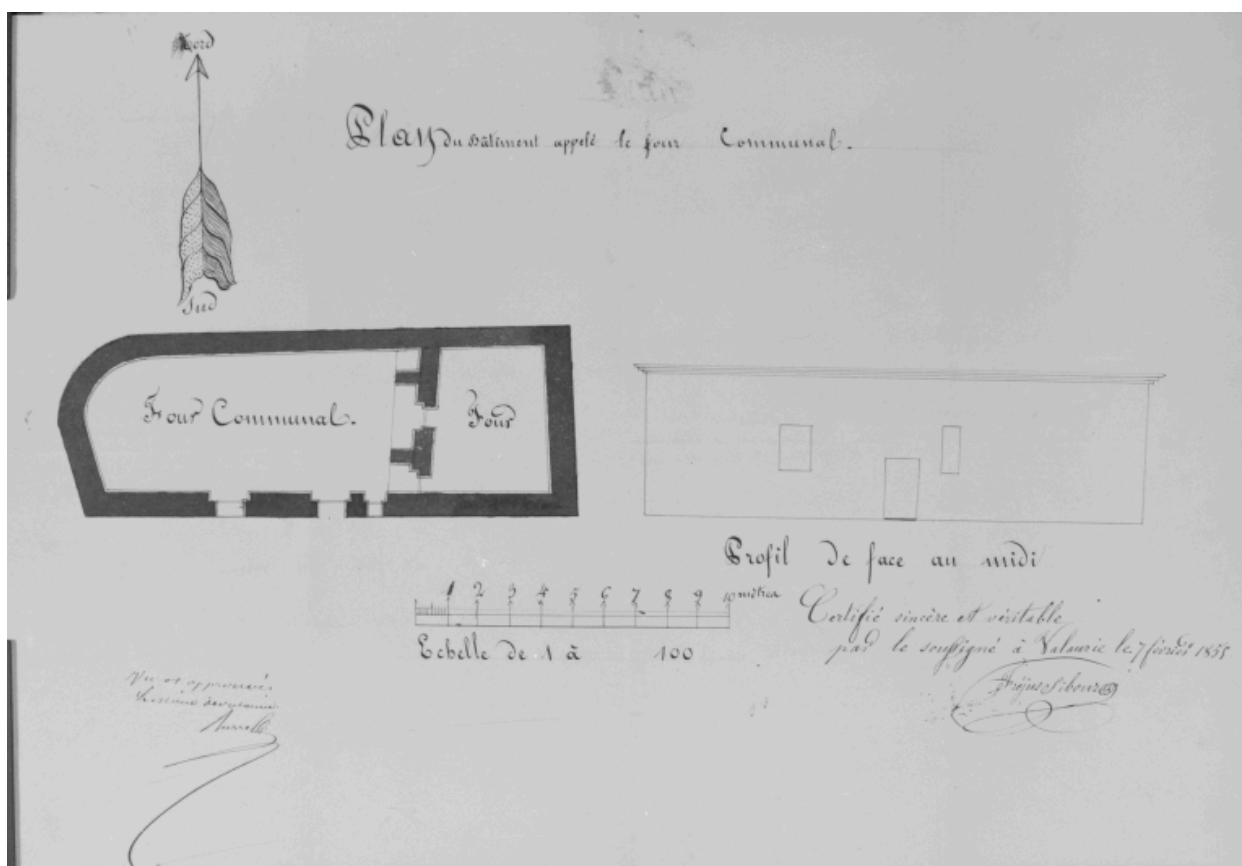 Nord
Plan du Bâtiment appelé le four Communal.
Sud
Four Communal.
Four
Profil de face au midi
1 2 3 4 5 6 7 8 9 10 mètres
Echelle de 1 à 100
Certifié sincère et véritable
par le soussigné à Valaurie le 7 février 1855
Fréjus Sibour
Vu et approuvé